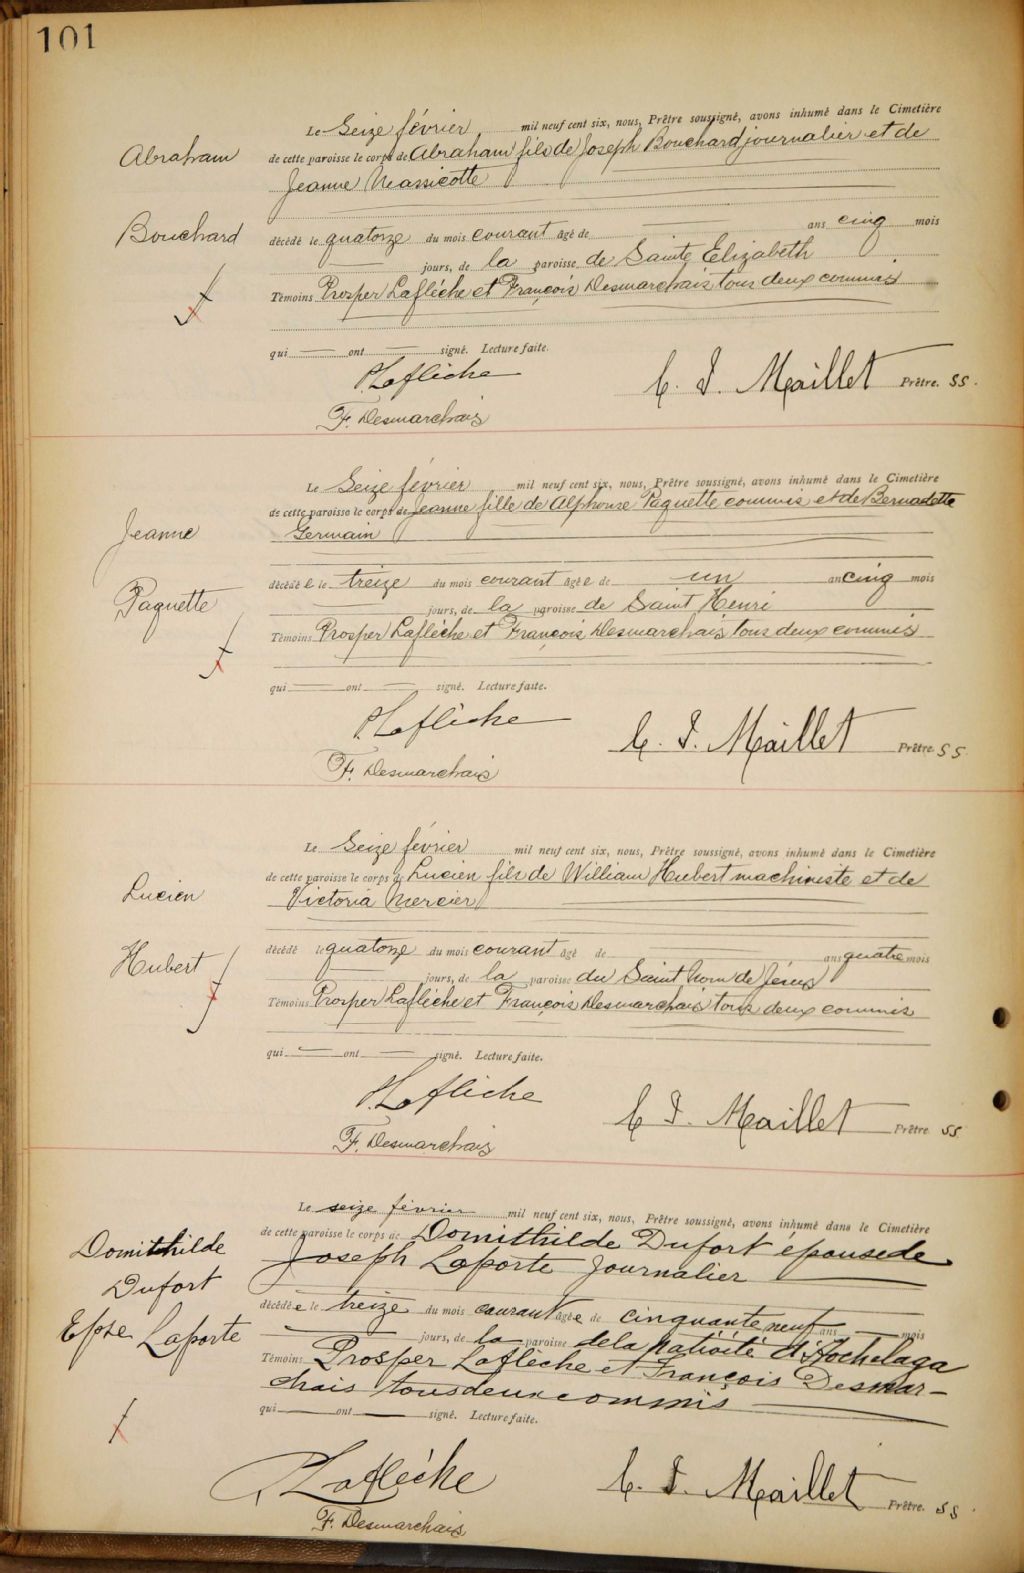 101
Le Seize février mil neuf cent six, nous, Prêtre soussigné, avons inhumé dans le Cimetière
Abraham
de cette paroisse le corps de Abraham fils de Joseph Bouchard journalier et de
Jeanne Massicotte
Bouchard
décédé le quatorze du mois courant âgé de ans cinq mois
jours, de la paroisse de Sainte Elizabeth
Témoins Prosper Laflèche et François Desmarchais tous deux commis
qui ont signé. Lecture faite.
P. Laflèche
C. I. Maillet Prêtre. SS.
F. Desmarchais
Le Seize février mil neuf cent six, nous, Prêtre soussigné, avons inhumé dans le Cimetière
Jeanne
de cette paroisse le corps de Jeanne fille de Alphonse Paquette commis et de Bernadette
Germain
Paquette
décédée le treize du mois courant âgée de un an cinq mois
jours, de la paroisse de Saint Henri
Témoins Prosper Laflèche et François Desmarchais tous deux commis
qui ont signé. Lecture faite.
P. Laflèche
C. I. Maillet Prêtre SS.
F. Desmarchais
Le Seize février mil neuf cent six, nous, Prêtre soussigné, avons inhumé dans le Cimetière
Lucien
de cette paroisse le corps de Lucien fils de William Hubert machiniste et de
Victoria Mercier
Hubert
décédé le quatorze du mois courant âgé de ans quatre mois
jours, de la paroisse du Saint Nom de Jésus
Témoins Prosper Laflèche et François Desmarchais tous deux commis
qui ont signé. Lecture faite.
P. Laflèche
C. I. Maillet Prêtre SS
F. Desmarchais
Le seize février mil neuf cent six, nous, Prêtre soussigné, avons inhumé dans le Cimetière
Domithilde
de cette paroisse le corps de Domithilde Dufort épouse de
Dufort
Joseph Laporte Journalier
Epse Laporte
décédée le treize du mois courant âgée de cinquante neuf ans mois
jours, de la paroisse de la nativité d'Hochelaga
Témoins Prosper Laflèche et François Desmar-
chais tous deux commis
qui ont signé. Lecture faite.
P. Laflèche
C. I. Maillet Prêtre. SS
F. Desmarchais